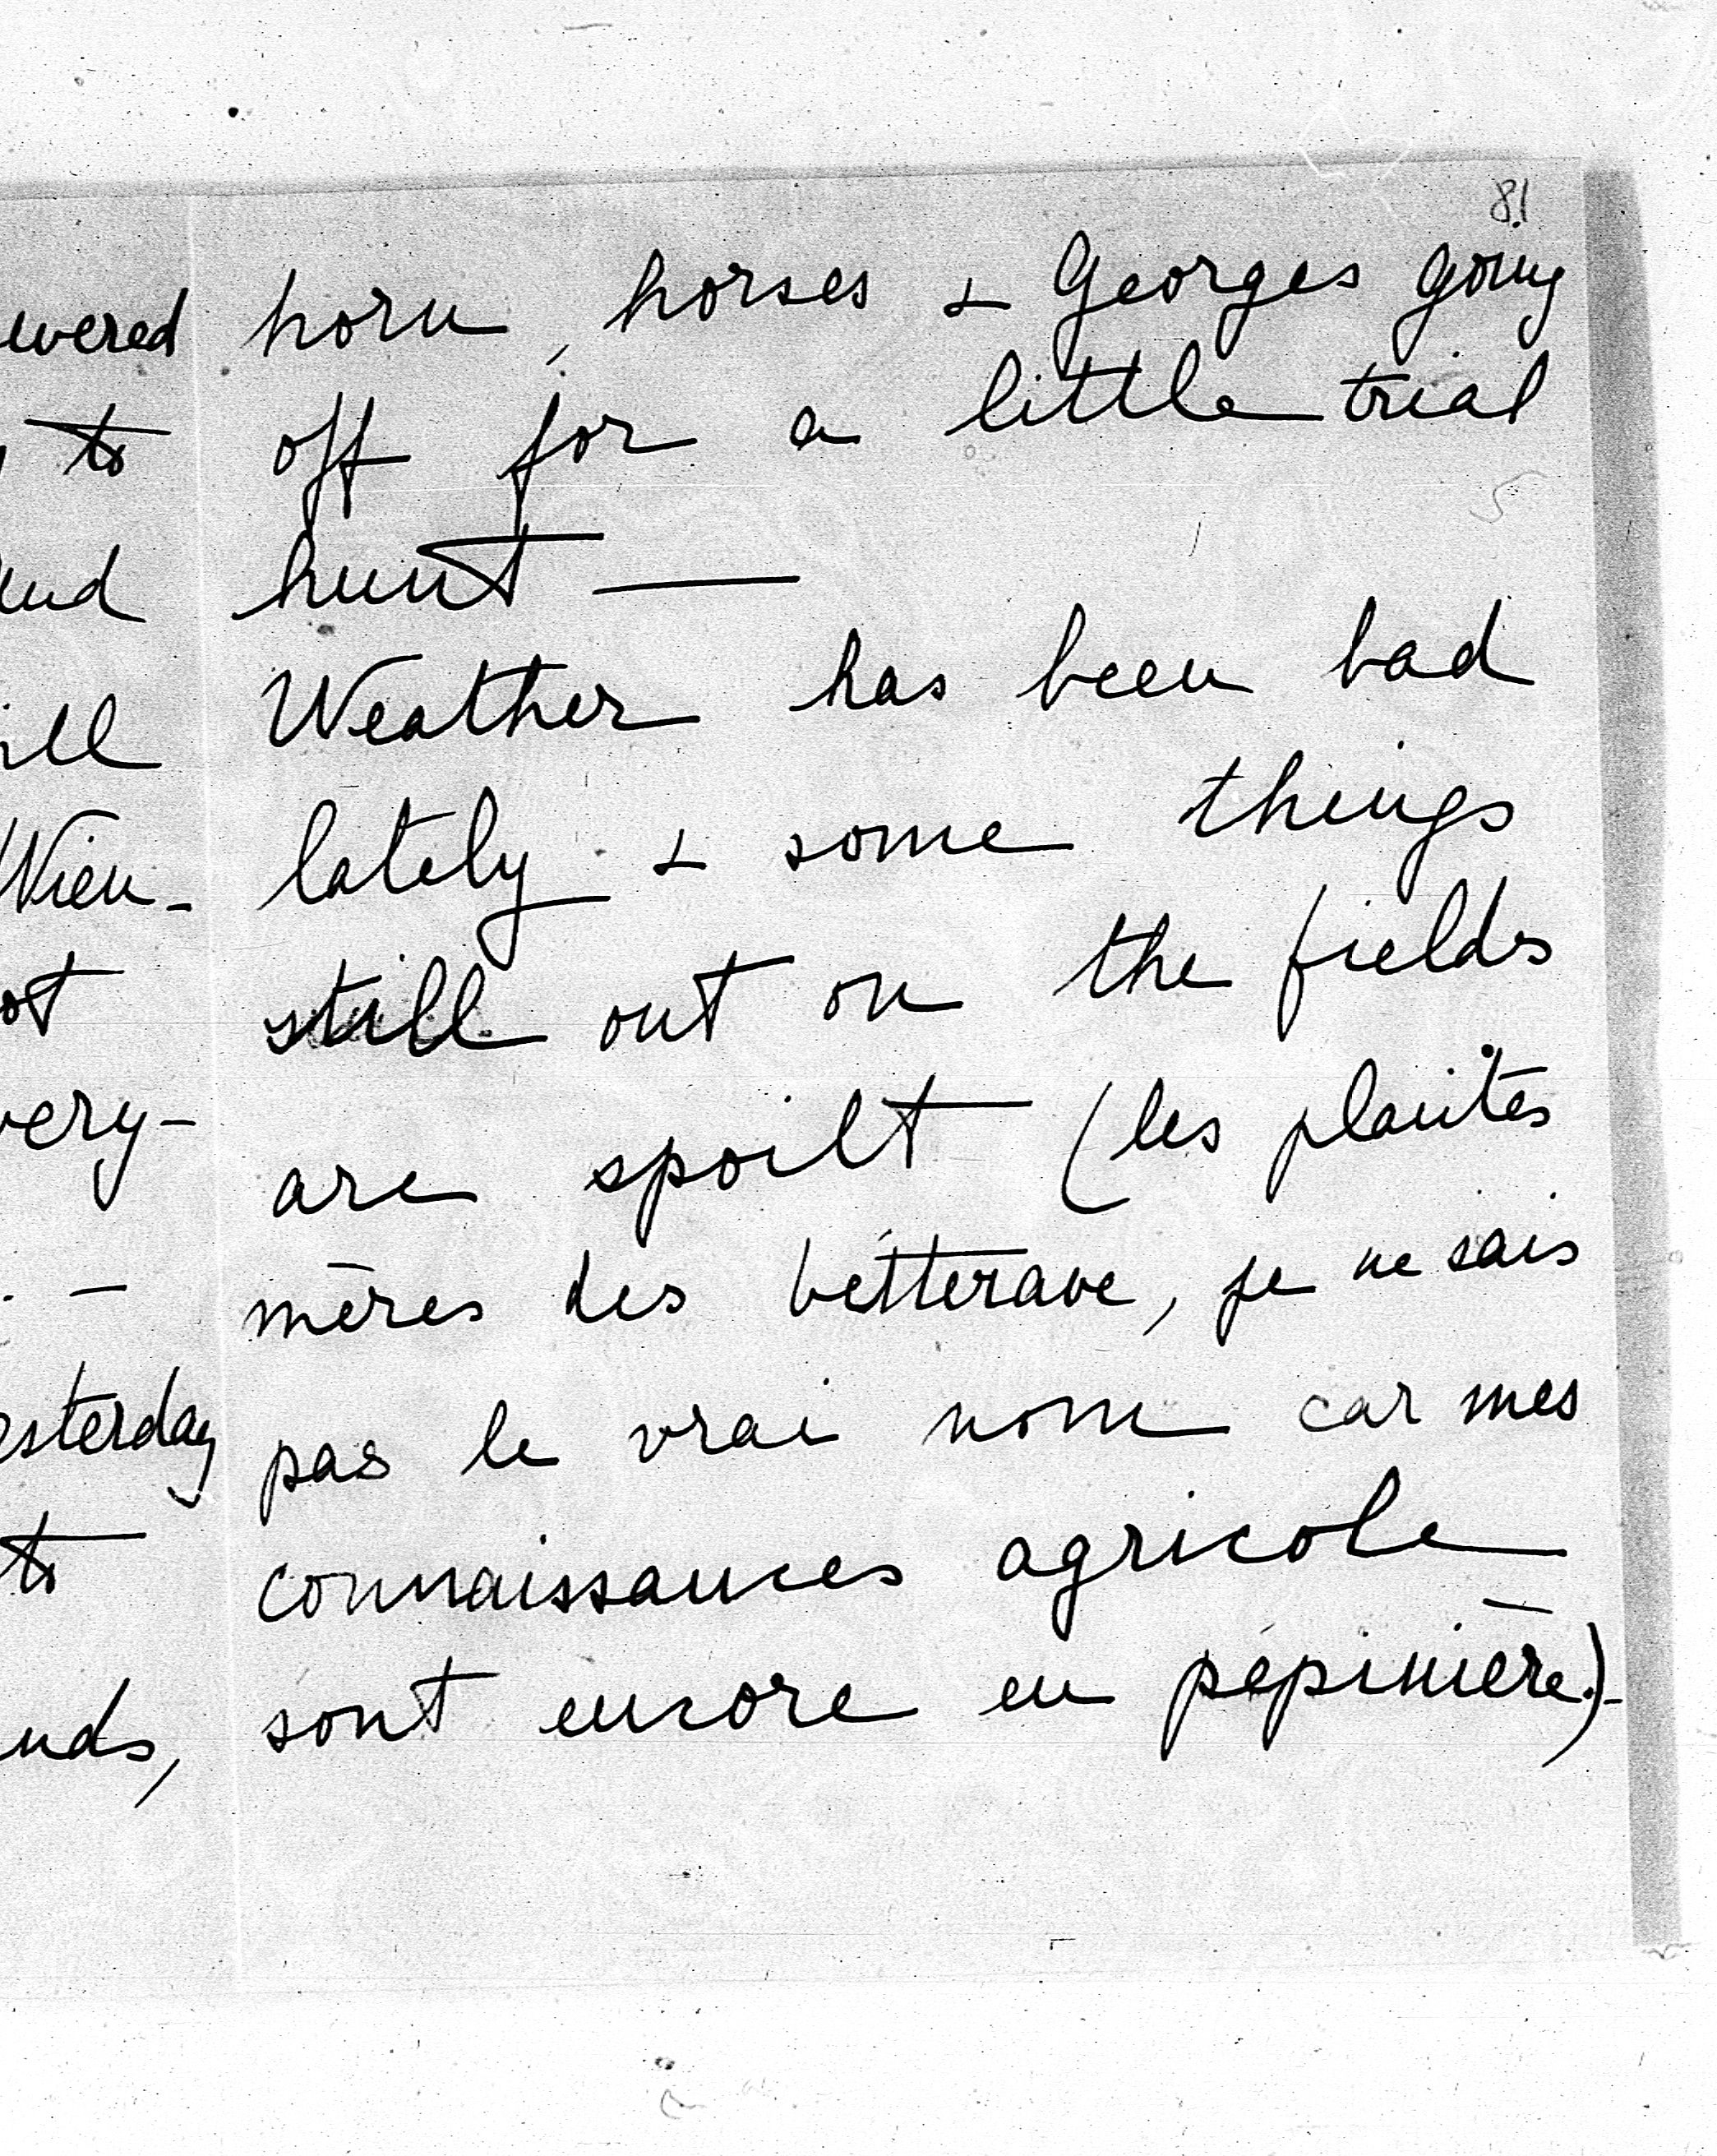 81
horn, horses & Georges going
off for a little trial
hunt —
Weather has been bad
lately & some things
still out on the fields
are spoilt (les plantes
mères des betterave, je ne sais
pas le vrai nom car mes
connaissances agricole
sont encore en pépinière.)-
to
Wien-
very-
. —
to